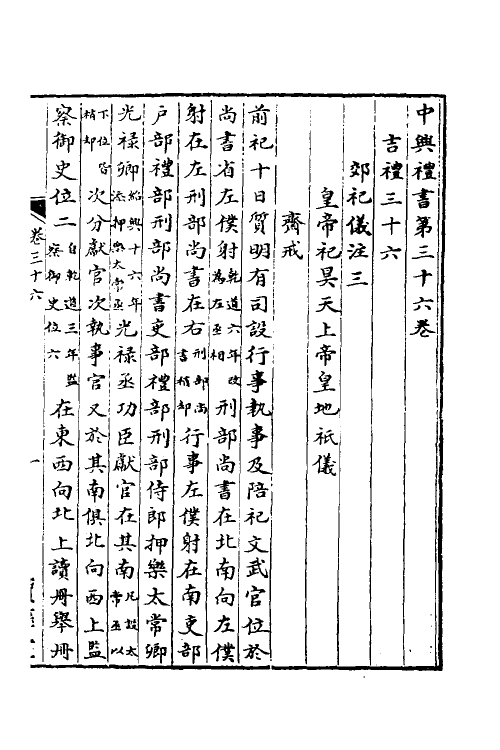 中興禮書第三十六卷
吉禮三十六
郊祀儀注三
皇帝祀昊天上帝皇地祇儀
齋戒
前祀十日質明有司設行事執事及陪祀文武官位於
尚書省左僕射乾道六年改為左丞相刑部尚書在北南向左僕
射在左刑部尚書在右刑部尚書稍却行事左僕射在南吏部
户部禮部刑部尚書吏部禮部刑部侍郎押樂太常卿
光禄卿紹興十六年添押樂太常丞光禄丞功臣獻官在其南凡設太常丞以
下位皆稍却次分獻官次執事官又於其南俱北向西上監
察御史位二自乾道三年監察御史位六在東西向北上讀册舉册
卷三十六
一